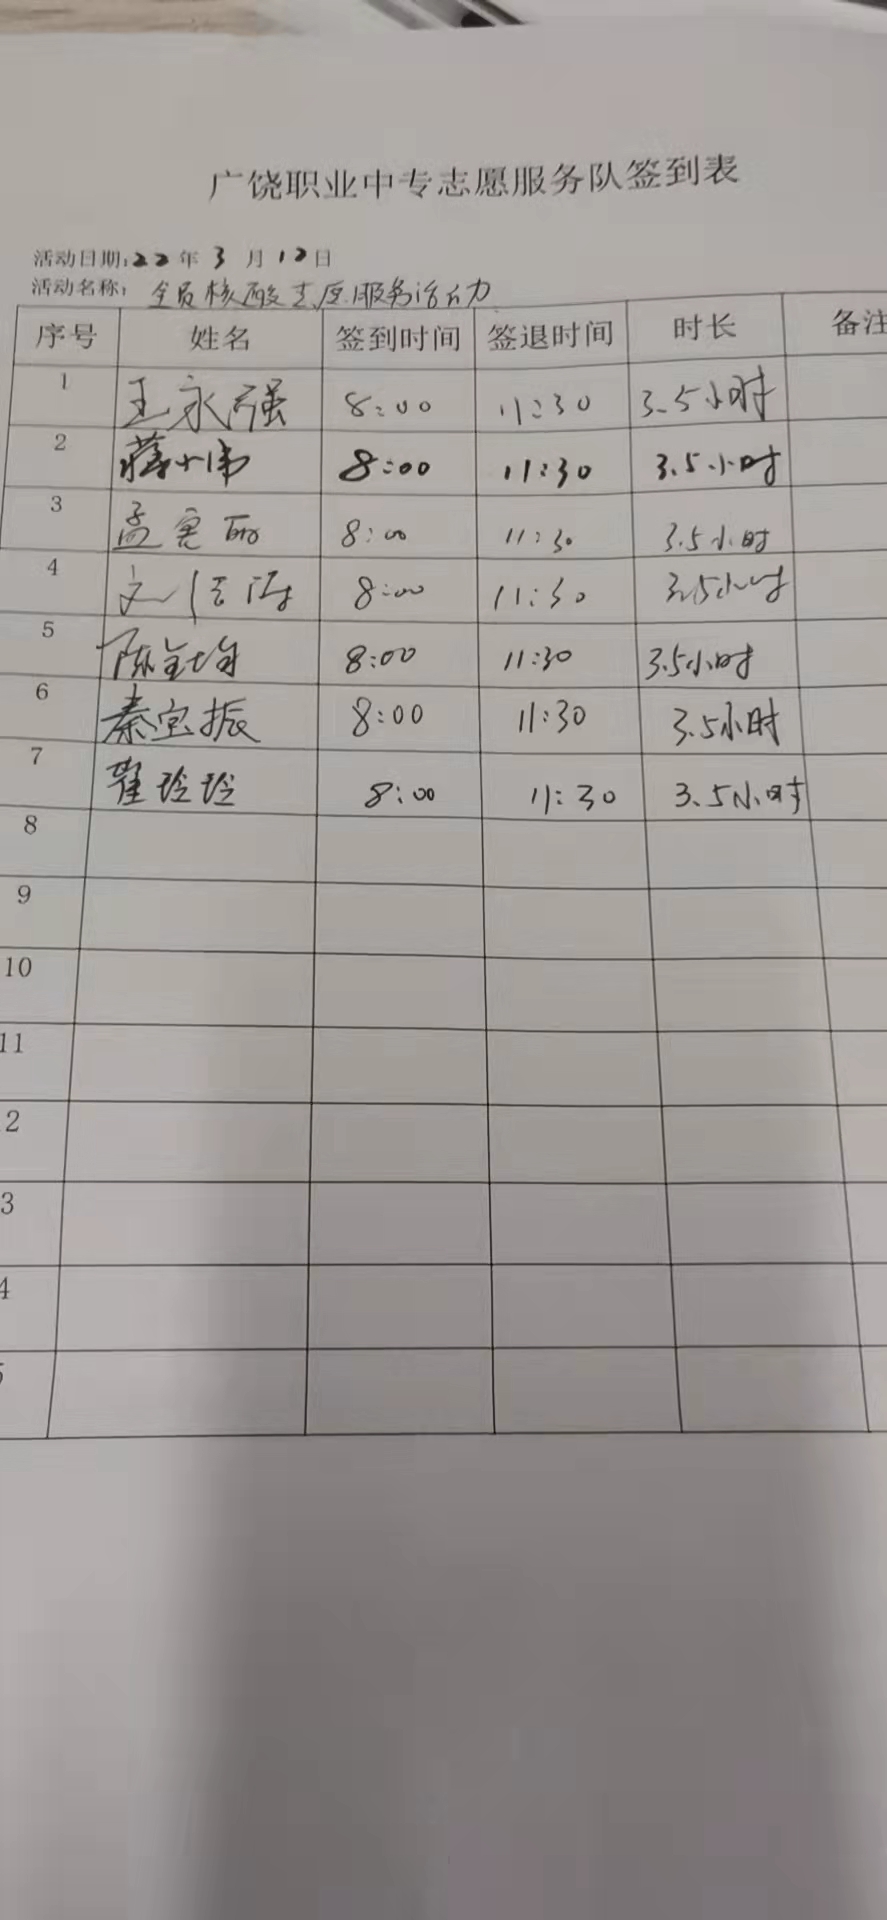 广饶职业中专志愿服务队签到表
活动日期:22年3月12日
活动名称: 全员核酸志愿服务活动
序号 姓名 签到时间 签退时间 时长 备注
1 王永强 8:00 11:30 3.5小时
2 蒋小伟 8:00 11:30 3.5小时
3 孟宪丽 8:00 11:30 3.5小时
4 8:00 11:30 3.5小时
5 陈 8:00 11:30 3.5小时
6 秦宝振 8:00 11:30 3.5小时
7 翟玲玲 8:00 11:30 3.5小时
8
9
10
11
2
3
4
5